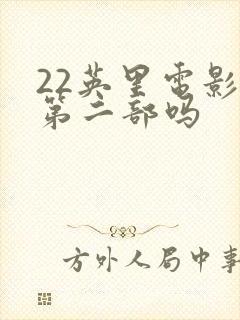 22英里电影
第二部吗
方外人局中事